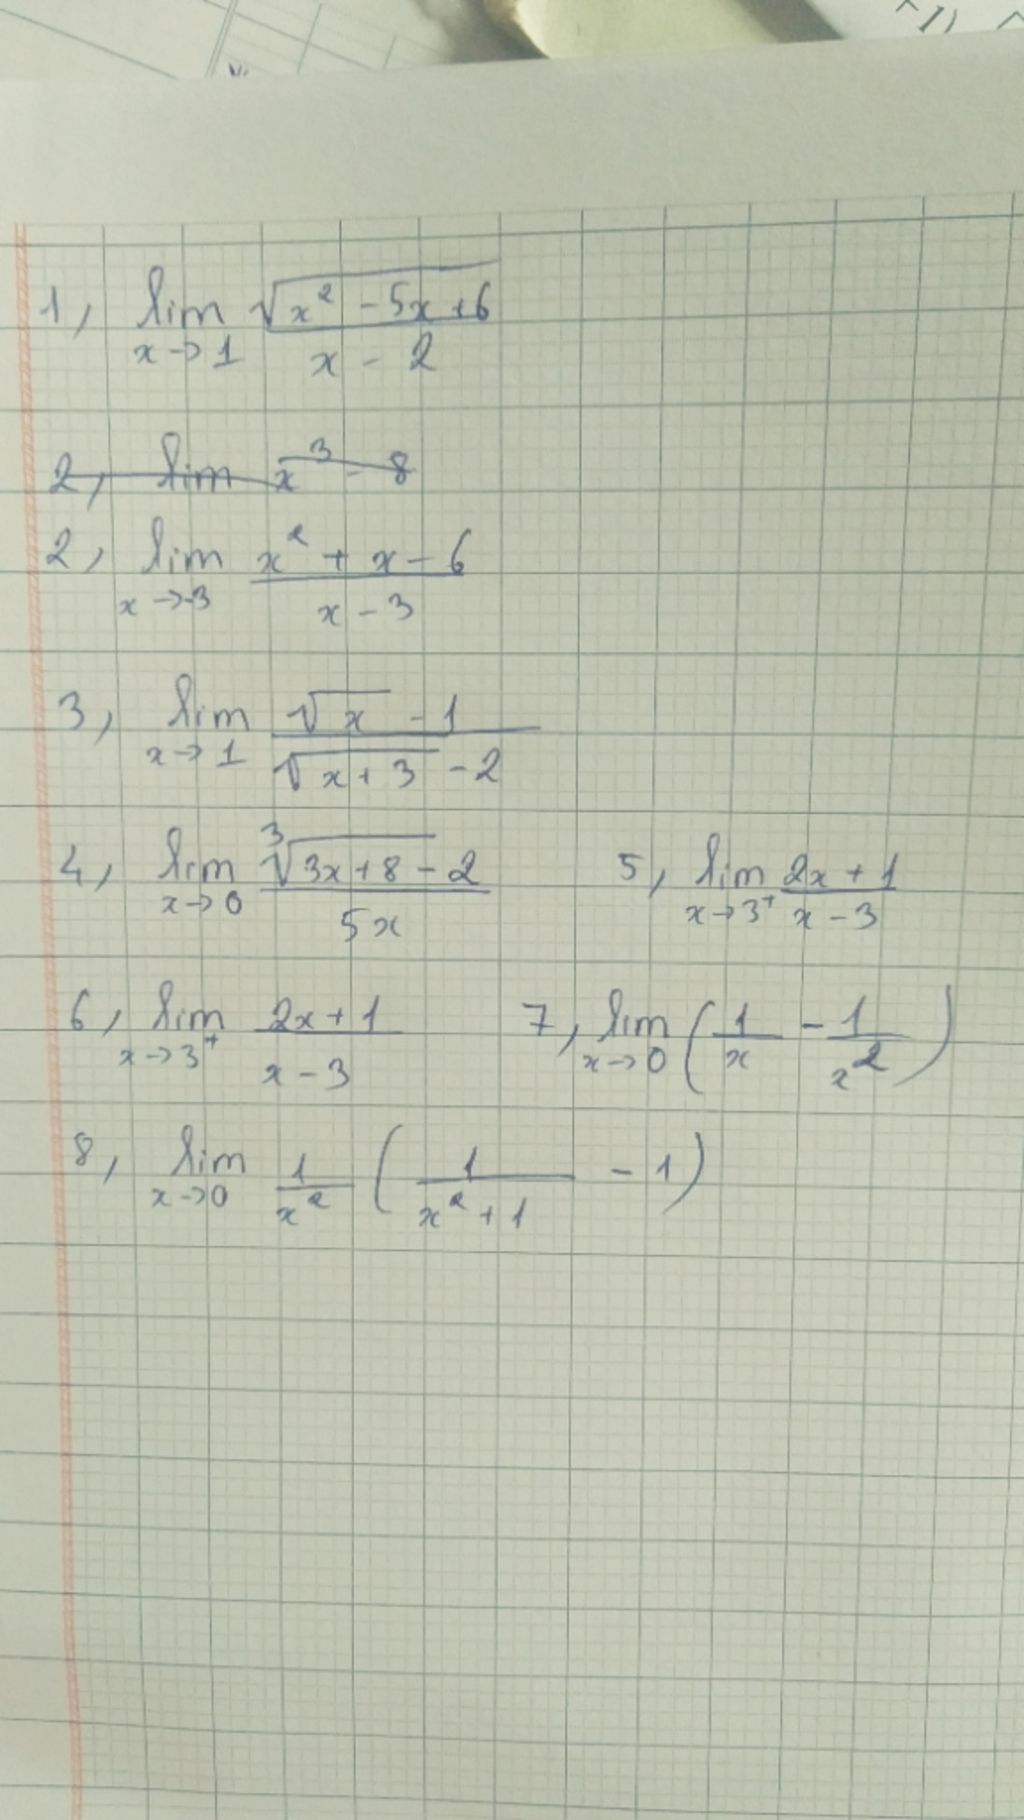 1, lim x→1 √(x² - 5x + 6) / (x - 2)
2, lim x³ - 8
2, lim x→-3 (x² + x - 6) / (x - 3)
3, lim x→1 (√x - 1) / (√(x + 3) - 2)
4, lim x→0 (∛(3x + 8) - 2) / 5x 5, lim x→3⁺ (2x + 1) / (x - 3)
6, lim x→3⁺ (2x + 1) / (x - 3) 7, lim x→0 (1/x - 1/x²)
8, lim x→0 1/x² (1/(x² + 1) - 1)